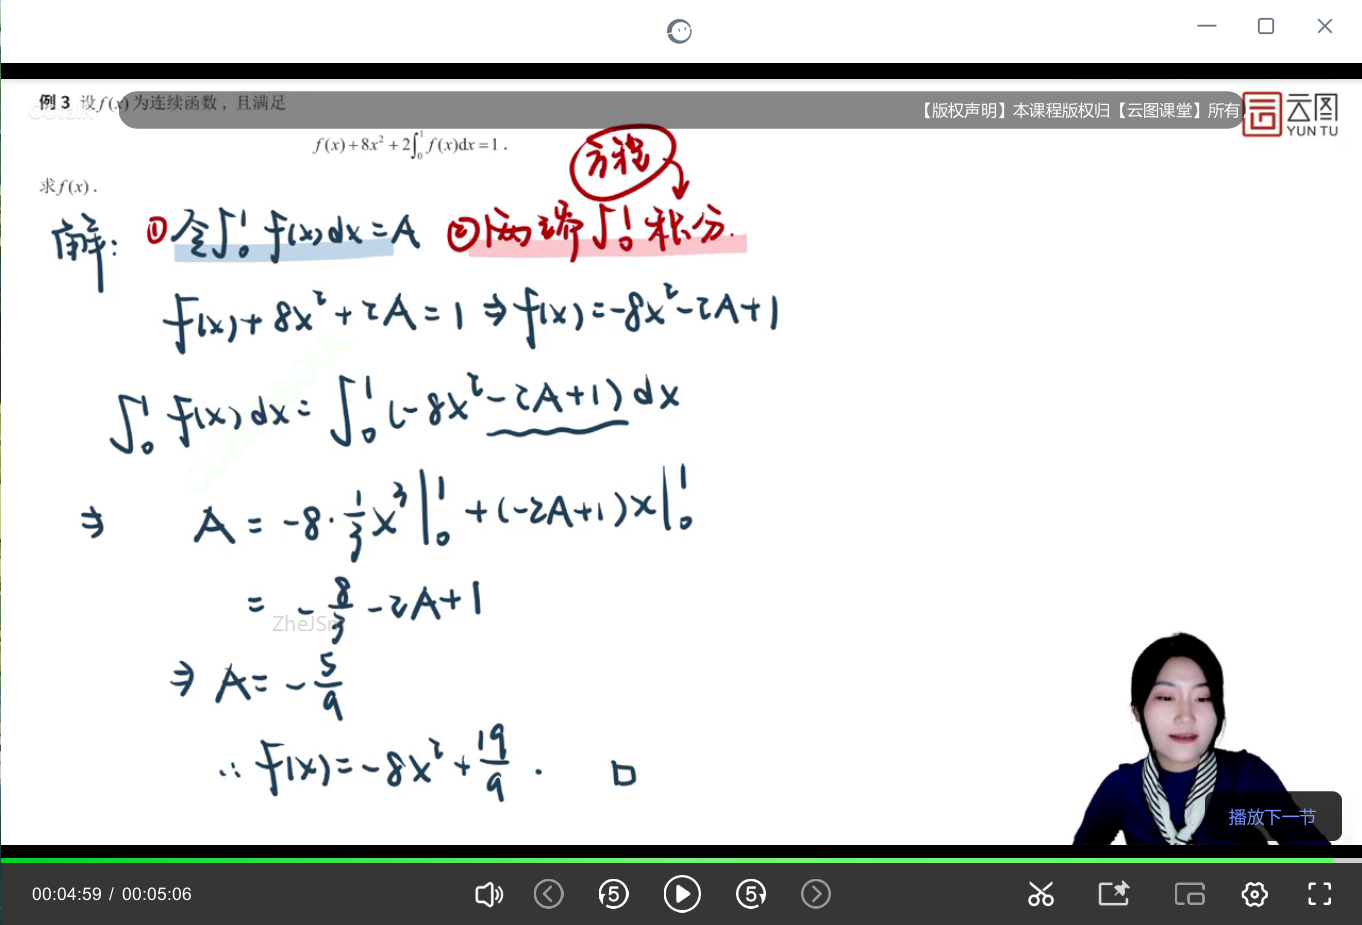 例 3 设 f(x) 为连续函数，且满足
【版权声明】本课程版权归【云图课堂】所有
云图
YUN TU
f(x)+8x²+2∫₀¹f(x)dx=1.
求 f(x).
方程
解: ①令∫₀¹ f(x)dx=A ②两端∫₀¹积分.
f(x)+8x²+2A=1 ⇒ f(x)=-8x²-2A+1
∫₀¹ f(x)dx=∫₀¹(-8x²-2A+1)dx
⇒ A=-8·1/3x³|₀¹+(-2A+1)x|₀¹
=-8/3-2A+1
ZheJS
⇒ A=-5/9
∴ f(x)=-8x²+19/9. □
播放下一节
00:04:59 / 00:05:06
5
5